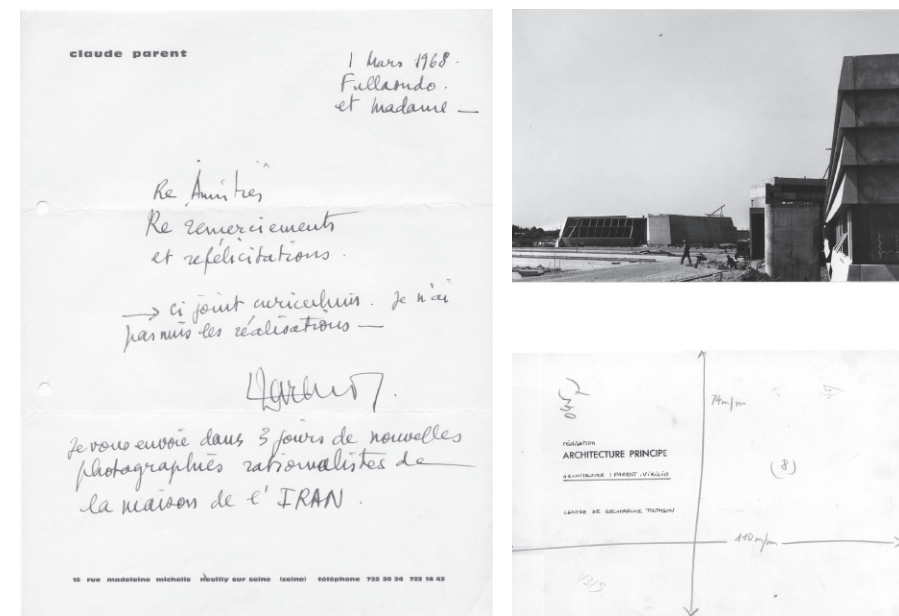 claude parent
1 Mars 1968.
Fullaondo.
et Madame —
Re Amitiés
Re remerciements
et refélicitations.
→ ci joint curiculum. Je n'ai
pas mis les réalisations —
Je vous envoie dans 3 jours de nouvelles
photographies rationalistes de
la maison de l'IRAN.
16 rue madeleine michelis neuilly sur seine (seine) téléphone 722 30 54 722 14 45
74 m/m
réalisation
ARCHITECTURE PRINCIPE
ARCHITECTURE : PARENT. VIRILIO
(8)
CENTRE DE RECHERCHE THOMSON
110 m/m